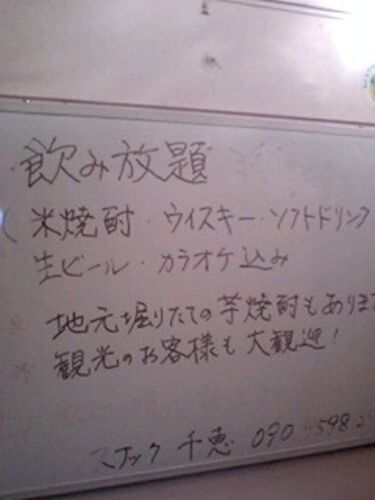 ・飲み放題
(米焼酎・ウイスキー・ソフトドリンク
生ビール・カラオケ込み
※ 地元堀りたての芋焼酎もありま
※ 観光のお客様も大観迎!
スナック 千恵 090 598